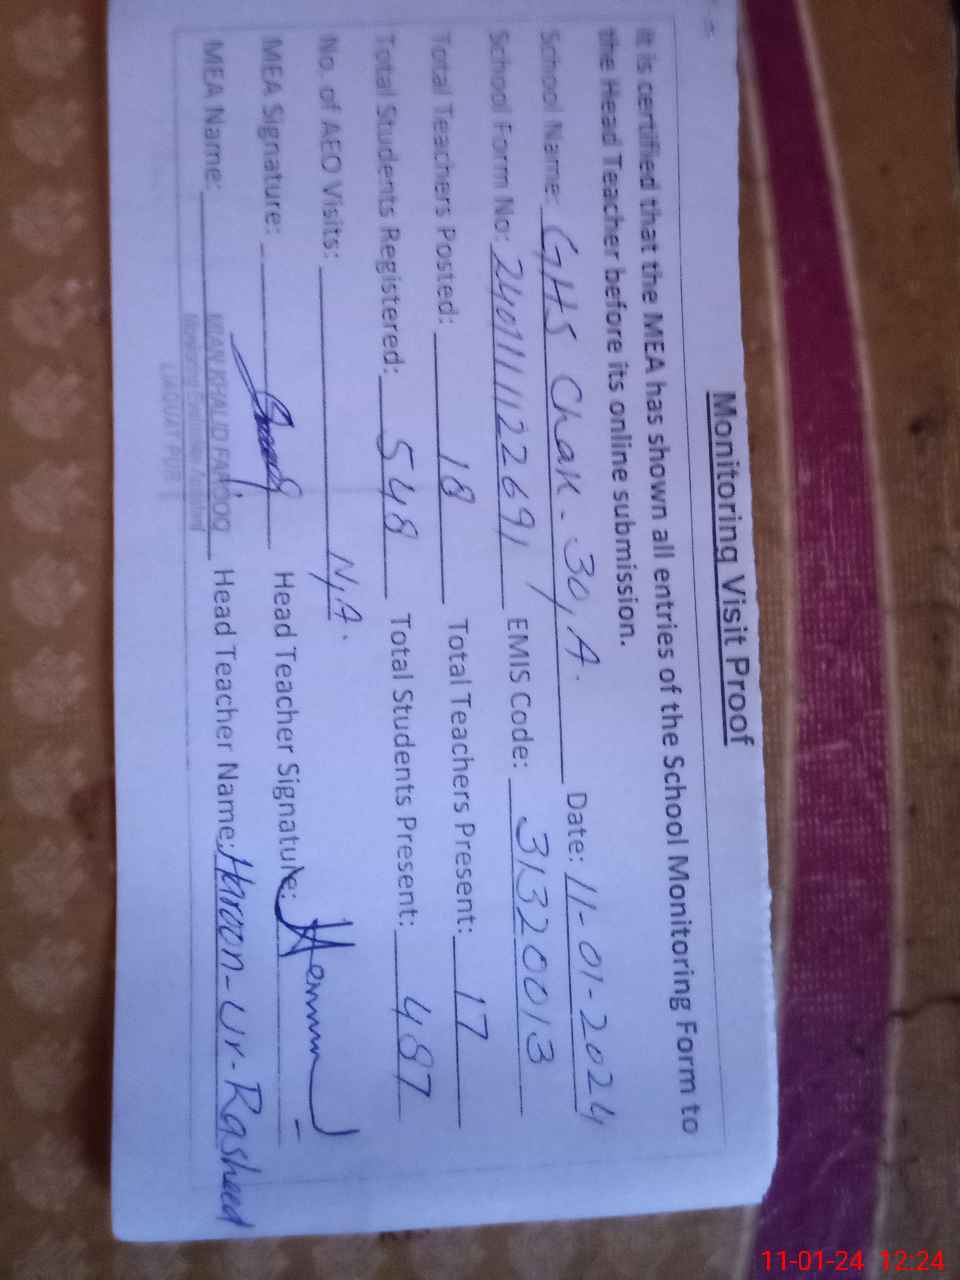 Monitoring Visit Proof
It is certified that the MEA has shown all entries of the School Monitoring Form to
the Head Teacher before its online submission.
School Name: GHS Chak-30/A. Date: 11-01-2024
School Form No: 24011112691 EMIS Code: 31320013
Total Teachers Posted: 18 Total Teachers Present: 17
Total Students Registered: 548 Total Students Present: 487
No. of AEO Visits: N/A.
MEA Signature: Head Teacher Signature:
MEA Name: MIAN KHALID FAROOQ Head Teacher Name: Haroon-Ur-Rasheed
LIAQUAT PUR
11-01-24 12:24